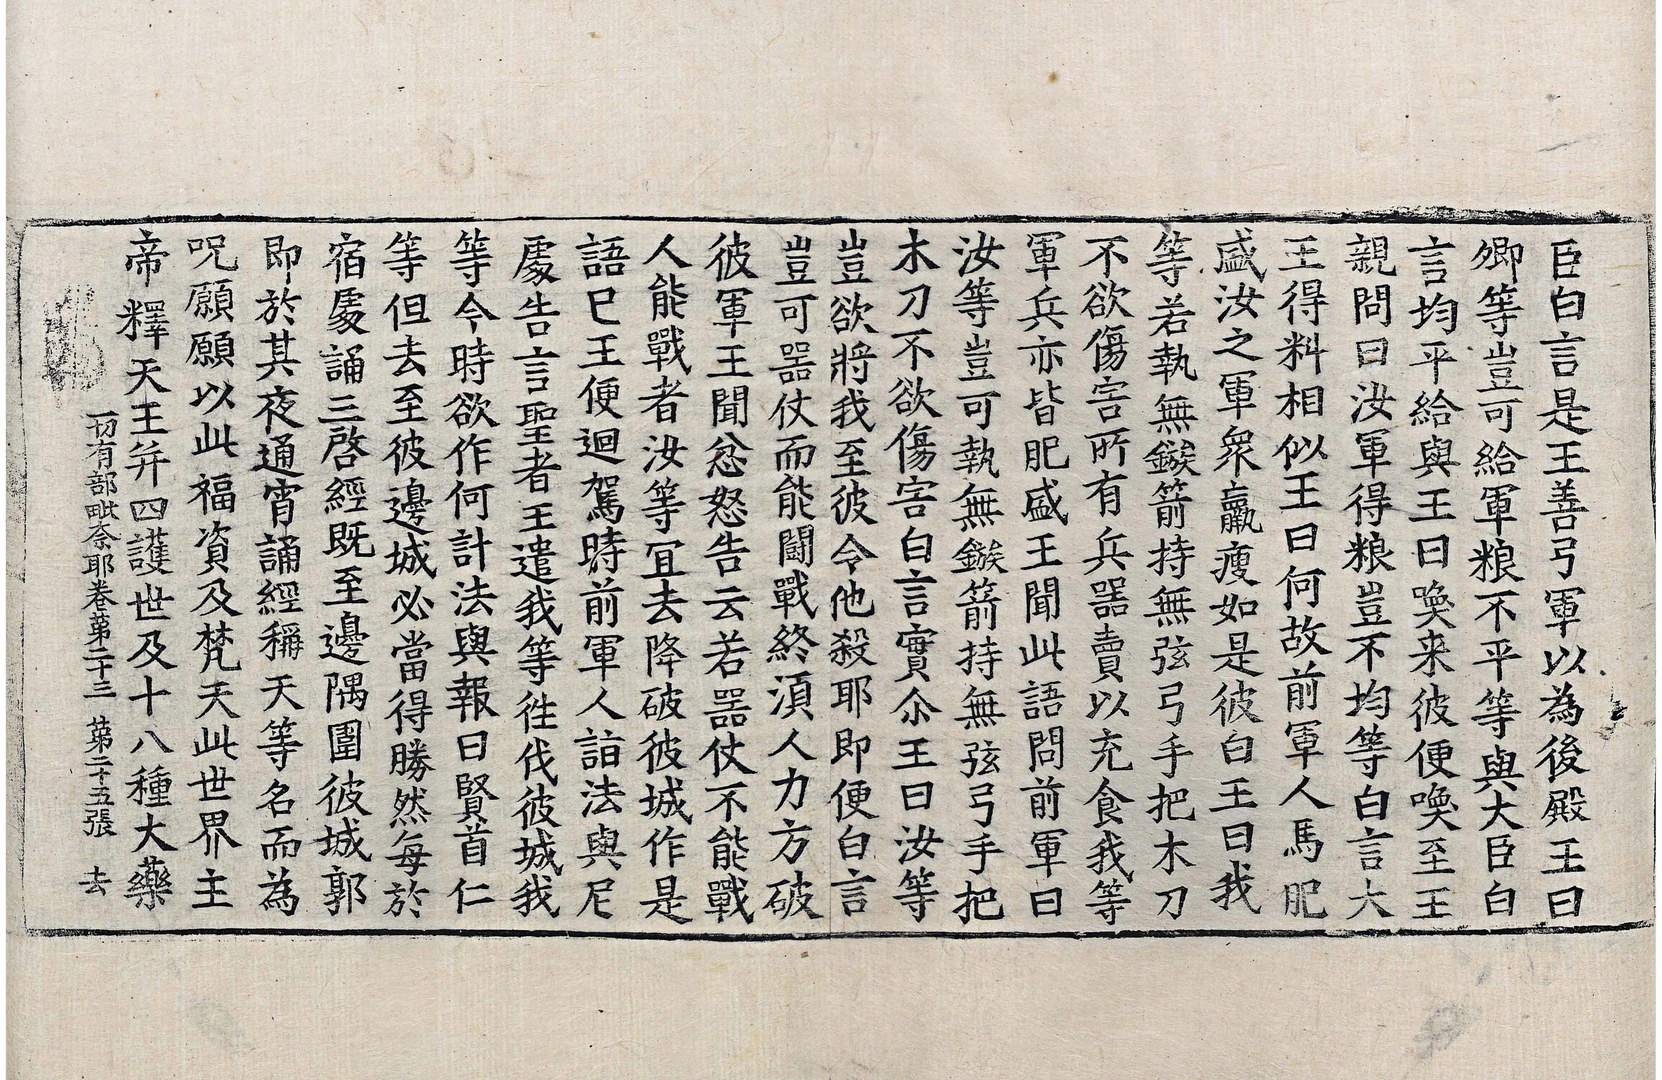 臣白言是王善弓軍以為後殿王曰
卿等豈可給軍粮不平等與大臣白
言均平給與王曰喚来彼便喚至王
親問曰汝軍得粮豈不均等白言大
王得料相似王曰何故前軍人馬肥
盛汝之軍衆羸瘦如是彼白王曰我
等若執無鏃箭持無弦弓手把木刀
不欲傷害所有兵器賣以充食我等
軍兵亦皆肥盛王聞此語問前軍曰
汝等豈可執無鏃箭持無弦弓手把
木刀不欲傷害白言實尒王曰汝等
豈欲將我至彼令他殺耶即便白言
豈可器仗而能鬪戰終湏人力方破
彼軍王聞忿怒告云若器仗不能戰
人能戰者汝等冝去降破彼城作是
語已王便迴駕時前軍人詣法與尼
處告言聖者王遣我等徃伐彼城我
等今時欲作何計法與報曰賢首仁
等但去至彼邊城必當得勝然每於
宿處誦三啓經既至邊隅圍彼城郭
即於其夜通宵誦經稱天等名而為
呪願願以此福資及梵天此世界主
帝釋天王并四護世及十八種大藥
一切有部毗奈耶卷苐二十三 苐二十五張 去